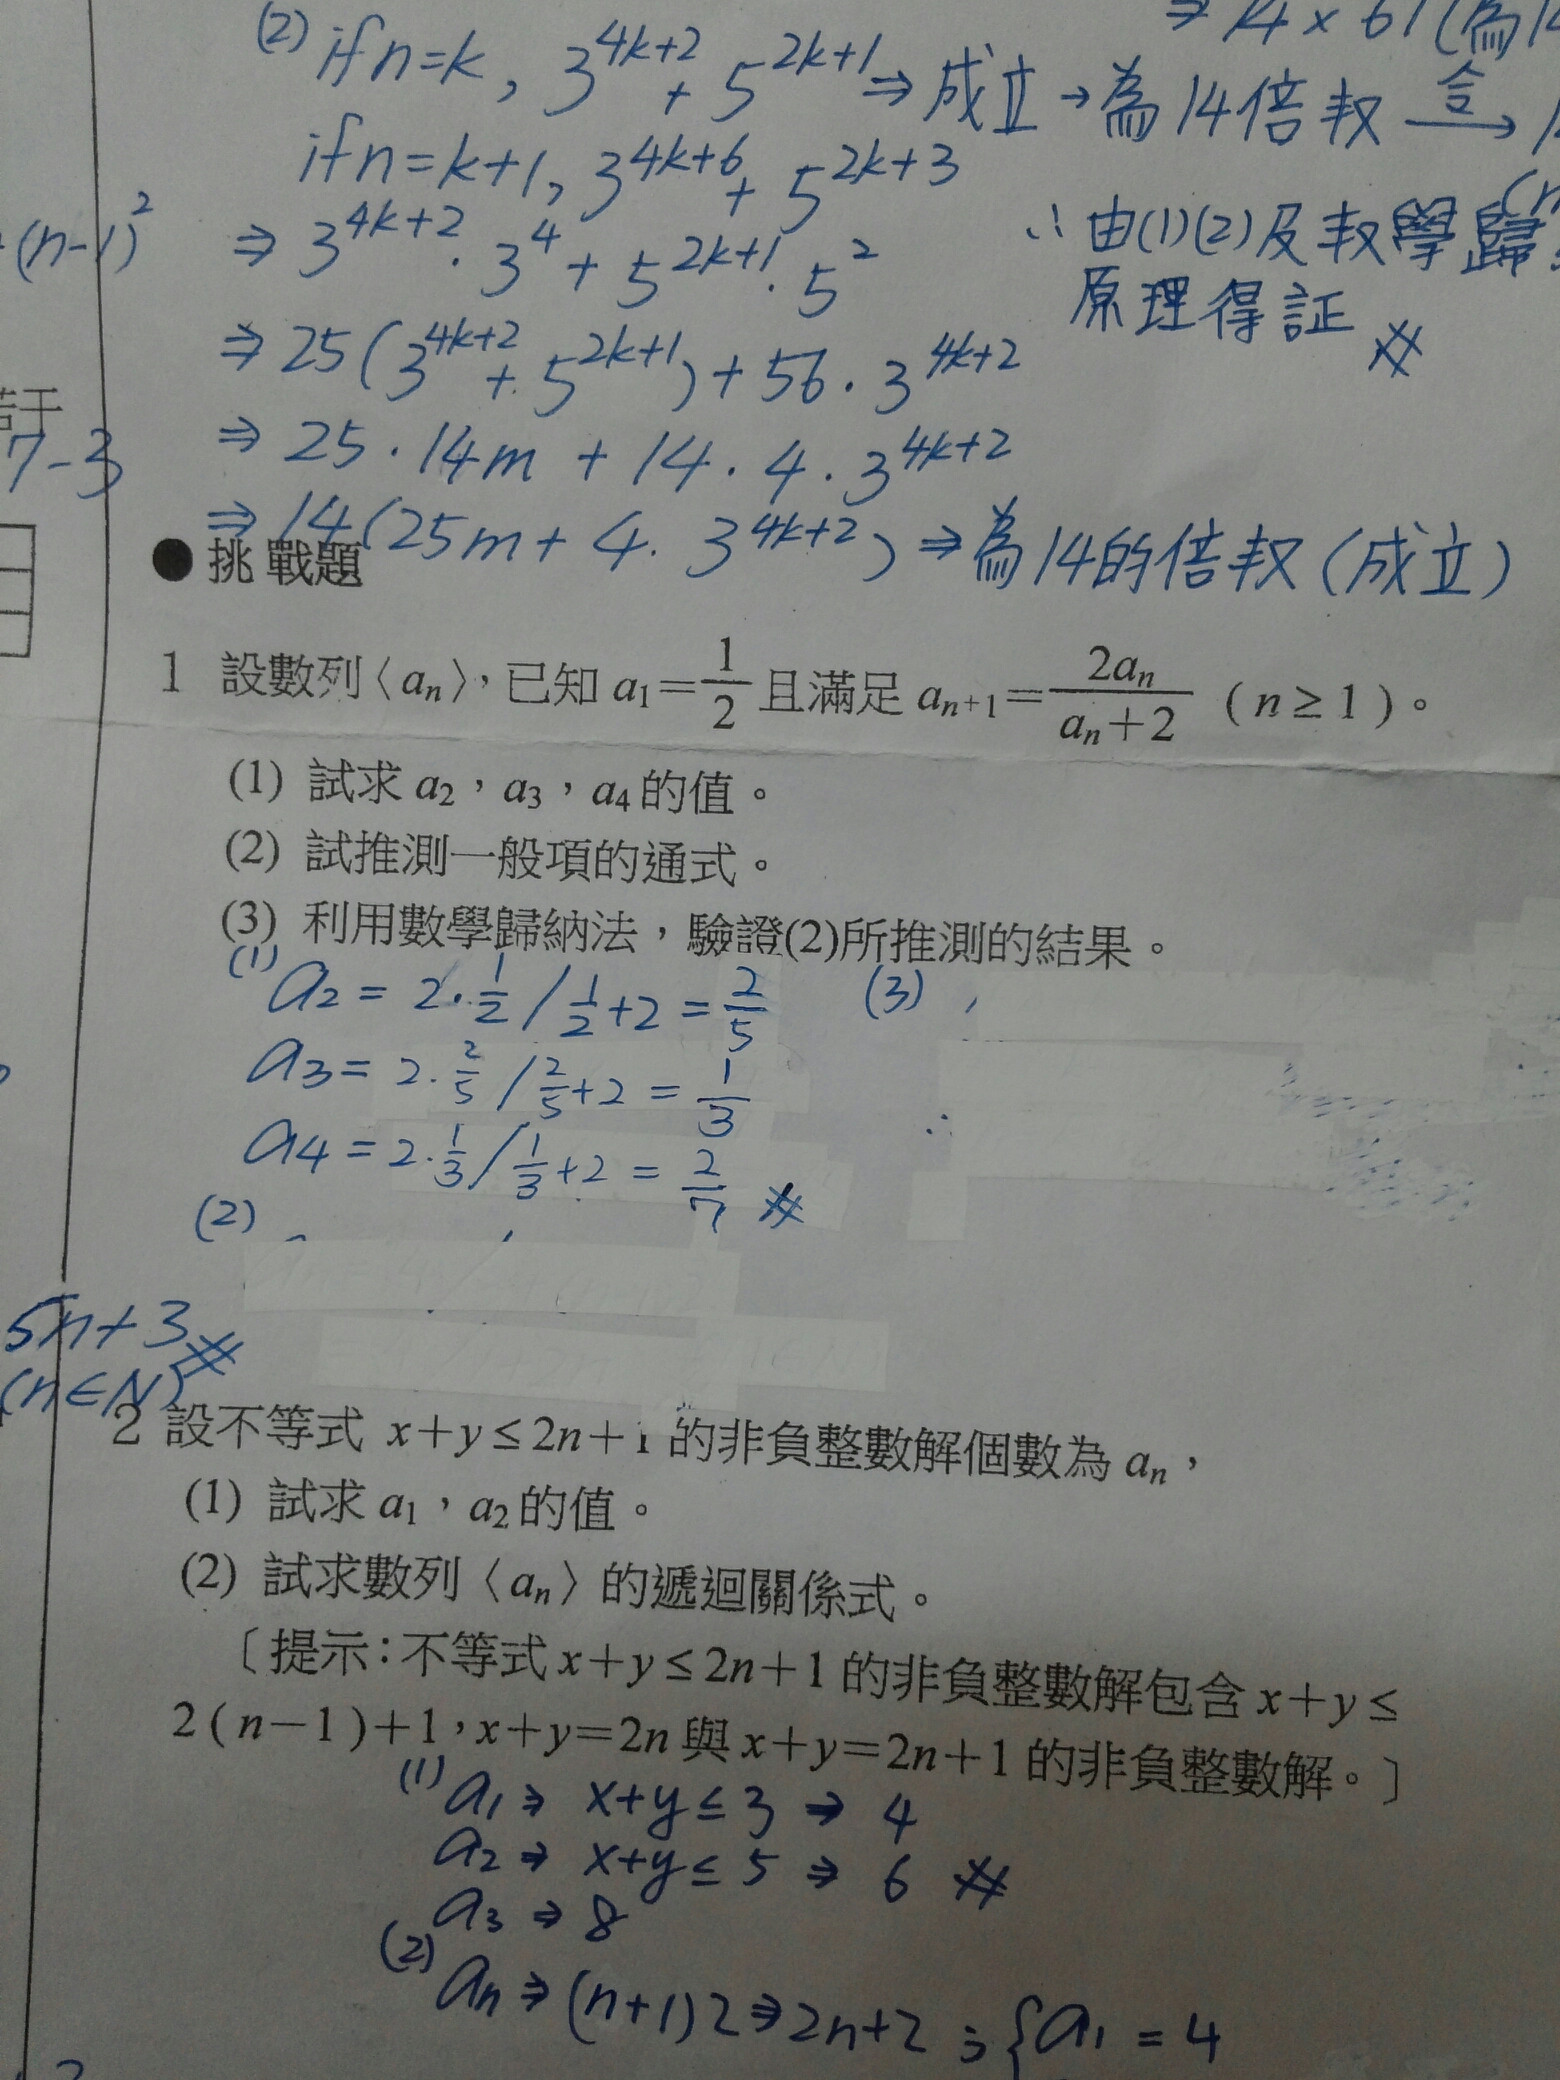 (2) if n=k, 3^{4k+2} + 5^{2k+1} ⇒ 成立 → 為14倍数 令→
⇒ 14 × 61 (為14
if n=k+1, 3^{4k+6} + 5^{2k+3}
⇒ 3^{4k+2} · 3^4 + 5^{2k+1} · 5^2
∴ 由(1)(2)及数學歸
原理得証 #
⇒ 25(3^{4k+2} + 5^{2k+1}) + 56 · 3^{4k+2}
⇒ 25 · 14m + 14 · 4 · 3^{4k+2}
⇒ 14(25m + 4 · 3^{4k+2}) ⇒ 為14的倍数(成立)
(n-1)^2
若干
7-3
● 挑戰題
1 設數列〈a_n〉，已知 a_1=1/2 且滿足 a_{n+1}=2a_n/(a_n+2) (n≥1)。
(1) 試求 a_2，a_3，a_4 的值。
(2) 試推測一般項的通式。
(3) 利用數學歸納法，驗證(2)所推測的結果。
(1) a_2 = 2·1/2 / 1/2+2 = 2/5
a_3 = 2·2/5 / 2/5+2 = 1/3
a_4 = 2·1/3 / 1/3+2 = 2/7 #
(2)
(3)
∴
5n+3 #
(n∈N)
2 設不等式 x+y≤2n+1 的非負整數解個數為 a_n，
(1) 試求 a_1，a_2 的值。
(2) 試求數列〈a_n〉的遞迴關係式。
〔提示：不等式 x+y≤2n+1 的非負整數解包含 x+y≤
2(n−1)+1，x+y=2n 與 x+y=2n+1 的非負整數解。〕
(1) a_1 ⇒ x+y≤3 ⇒ 4
a_2 ⇒ x+y≤5 ⇒ 6 #
a_3 ⇒ 8
(2) a_n ⇒ (n+1)2 ⇒ 2n+2 ; { a_1 = 4